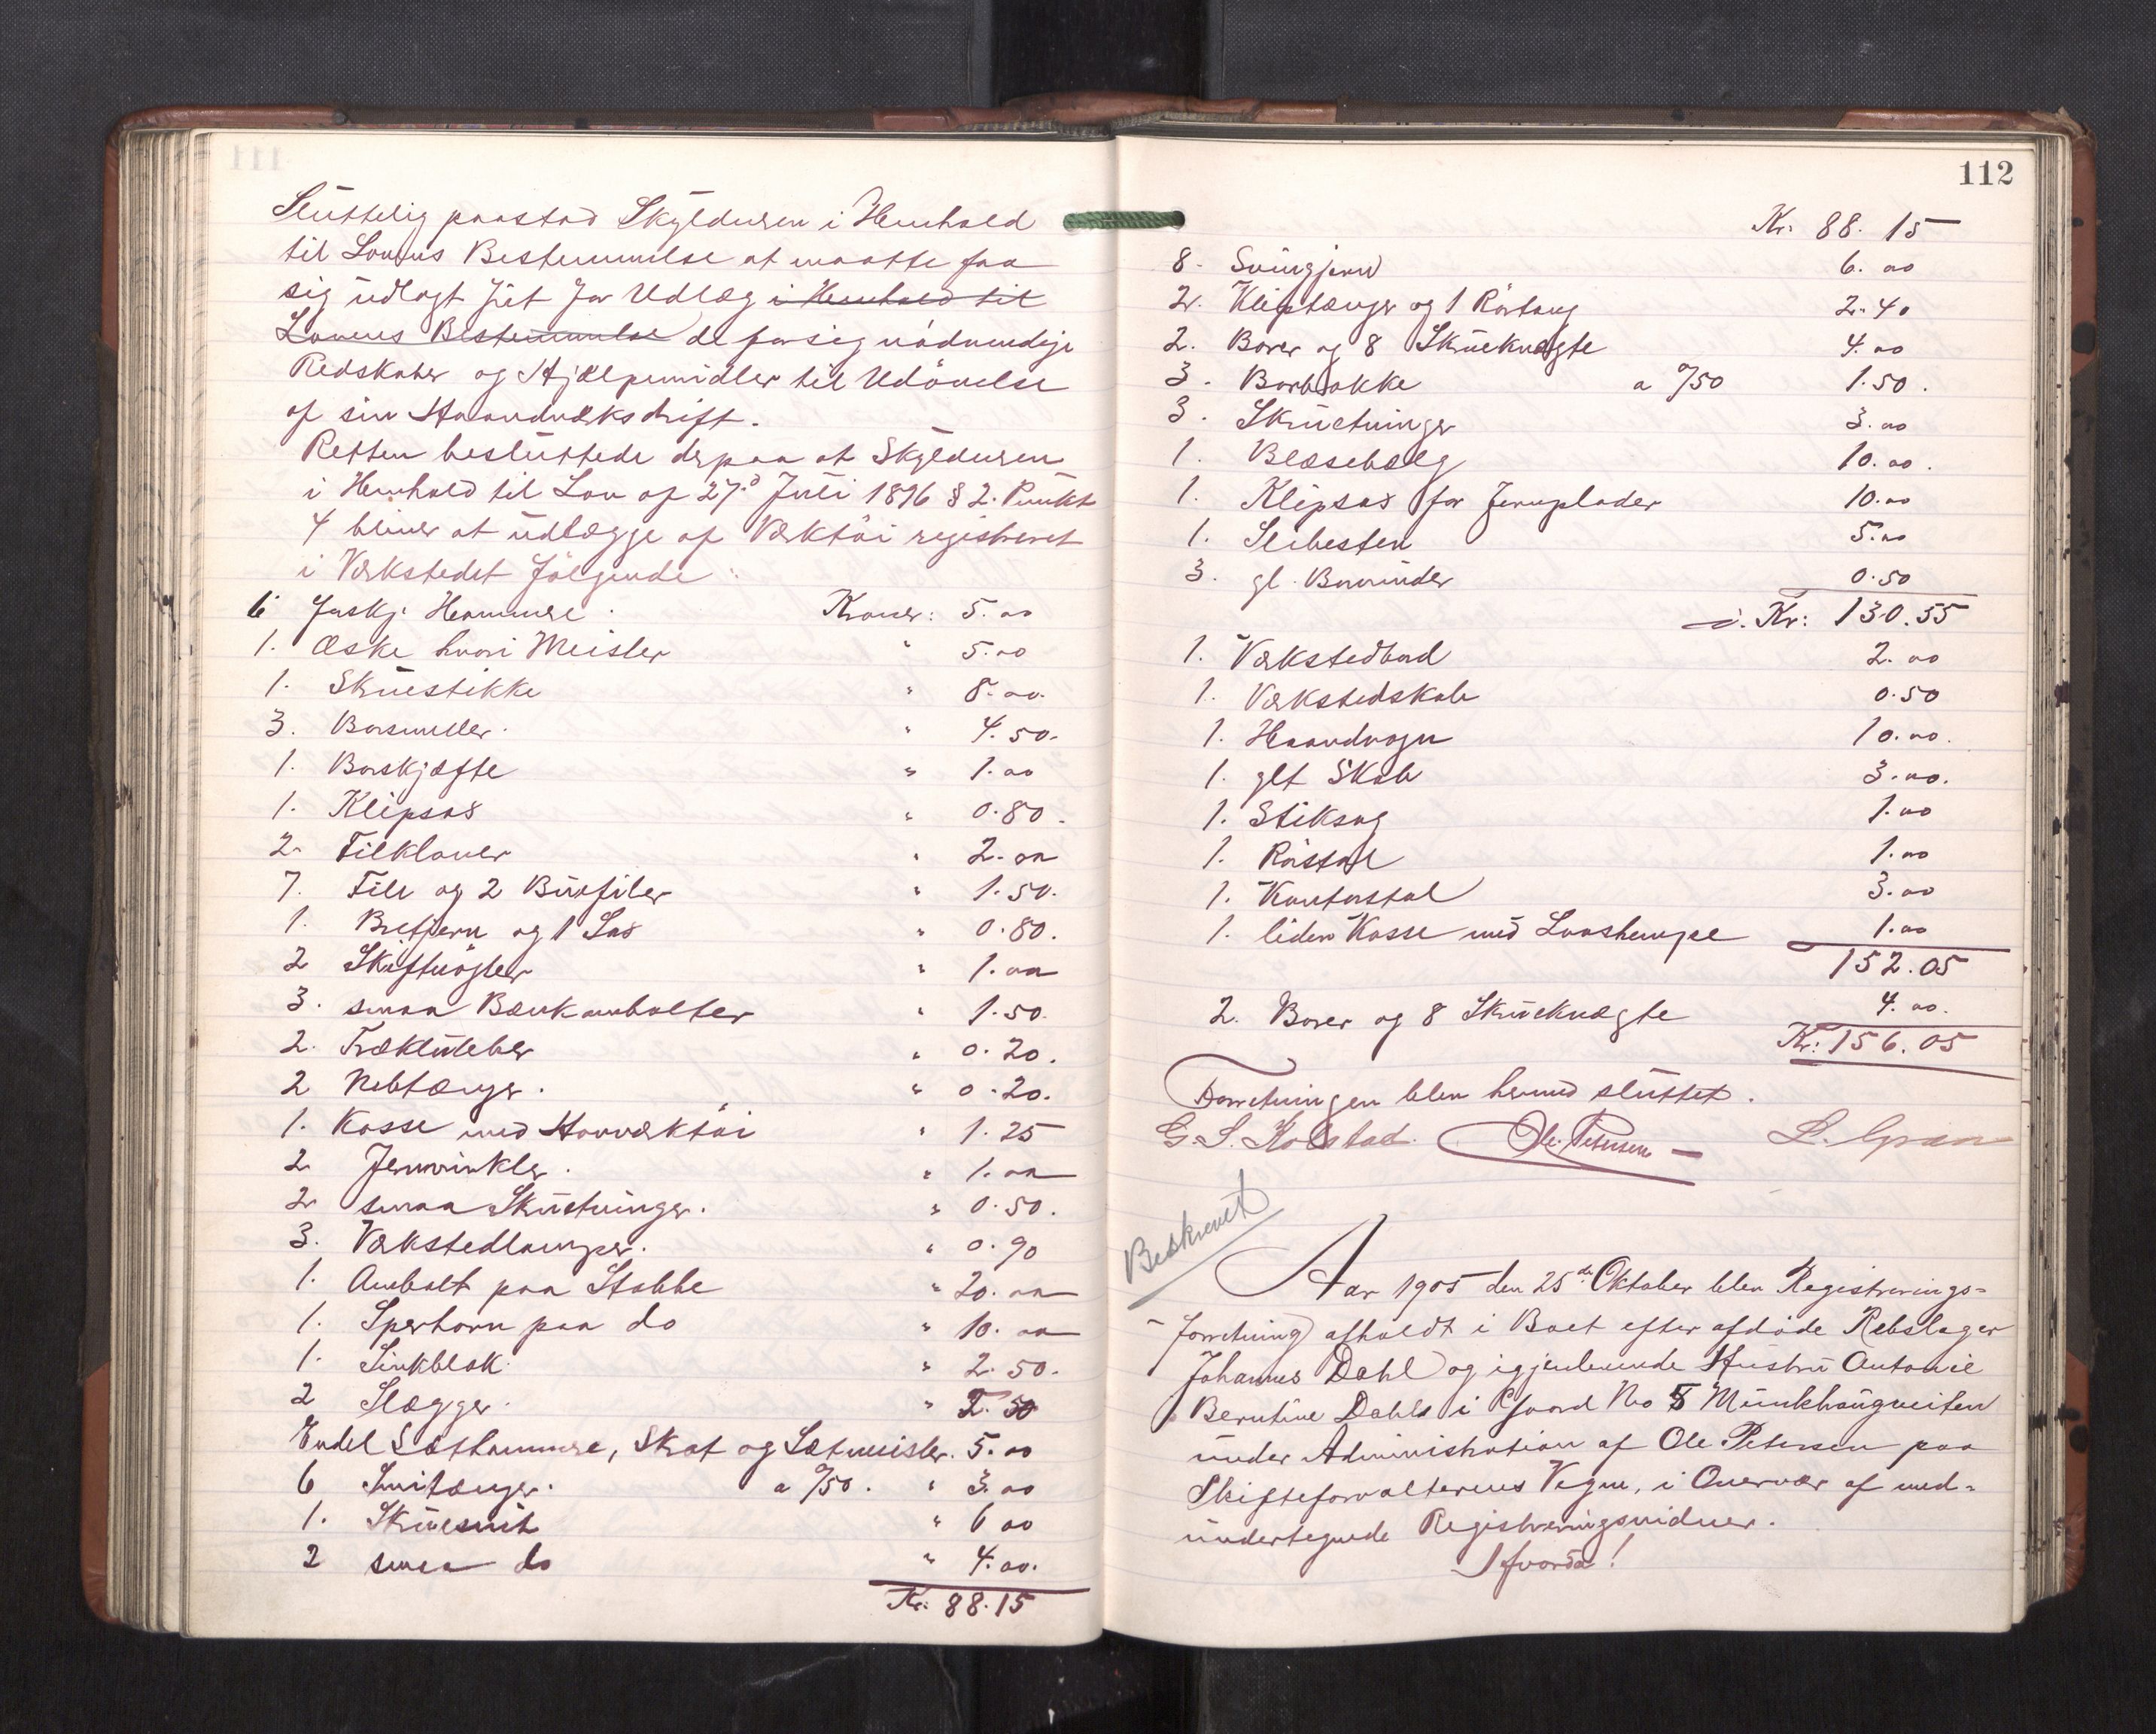 Sluttelig paastod Skyldneren i Henhold
til Lovens Bestemmelse at maatte faa
sig udlagt frit for Udlæg i Henhold til
Lovens Bestemmelse de for sig nödvendige
Redskaber og Hjælpemidler til Udövelse
af sin Haandværksdrift.
Retten besluttede derpaa at Skyldneren
i Henhold til Lov af 27.d Juli 1896 § 2. Punkt
4 bliver at udlægge af Værktöi registreret
i Værkstedet fölgende:
6 forskj. Hammere. Kroner: 5.00
1. Æske hvori Meisler " 5.00
1. Skruestikke " 8.00.
3. Borsveller. " 4.50.
1. Borskjæfte " 1.00
1. Klipsax " 0.80.
2. Filklover " 2.00
7. File og 2 Buefiler " 1.50.
1. Brefjern og 1 Sax " 0.80.
2 Skiftnögler " 1.00
3. smaa Bænkambolter " 1.50.
2. Trækklubber " 0.20.
2 Nebtænger. " 0.20.
1. Kasse med Hovværktöi " 1.25
2 Jernvinkler. " 1.00
2 smaa Skruetvinger. " 0.50.
3. Værkstedlamper. " 0.90
1. Ambolt paa Stabbe " 20.00
1. Sperhorn paa do " 10.00
1. Sinkblok. " 2.50.
2 Slægger. " 2.50
Endel Sæthammere, Skrot og Sætmeisler. 5.00
6 Smitænger. a 0/50. " 3.00
1. Skruesnit " 6 00
2 smaa do " 4.00.
Kr: 88.15
112
Kr: 88.15
8. Svingjern 6.00
2. Kliptænger og 1 Rörtang 2.40
2. Borer og 8 Skrueknægte 4.00
3. Borbakke a 0/50 1.50.
3. Skruetvinger 3.00
1. Blæsebælg 10.00.
1. Klipsax for Jernplader 10.00
1. Slibesten 5.00
3. gl. Borvinder 0.50
Kr: 130.55
1. Værkstedbord 2.00
1. Værkstedskab 0.50
1. Haandvogn 10.00.
1. glt Skab 3.00.
1. Stiksag 1.00
1. 1.00
1. Kontorstol 3.00
1. liden Kasse med Laashempe 1.00
152.05
2. Borer og 8 Skrueknægte 4.00.
Kr: 156.05
Forretningen blev hermed sluttet.
G. S. Kolstad. Ole Petersen L. Gran
Beskrevet
Aar 1905 den 25de Oktober blev Registrerings-
forretning afholdt i Boet efter afdöde Rebslager
Johannes Dahl og igjenlevende Hustru Antonie
Berntine Dahls i Gaard No 5 Munkhaugveiten
under Administration af Ole Petersen paa
Skifteforvalterens Vegne, i Overvær af med-
undertegnede Registreringsvidner.
Hvorda!